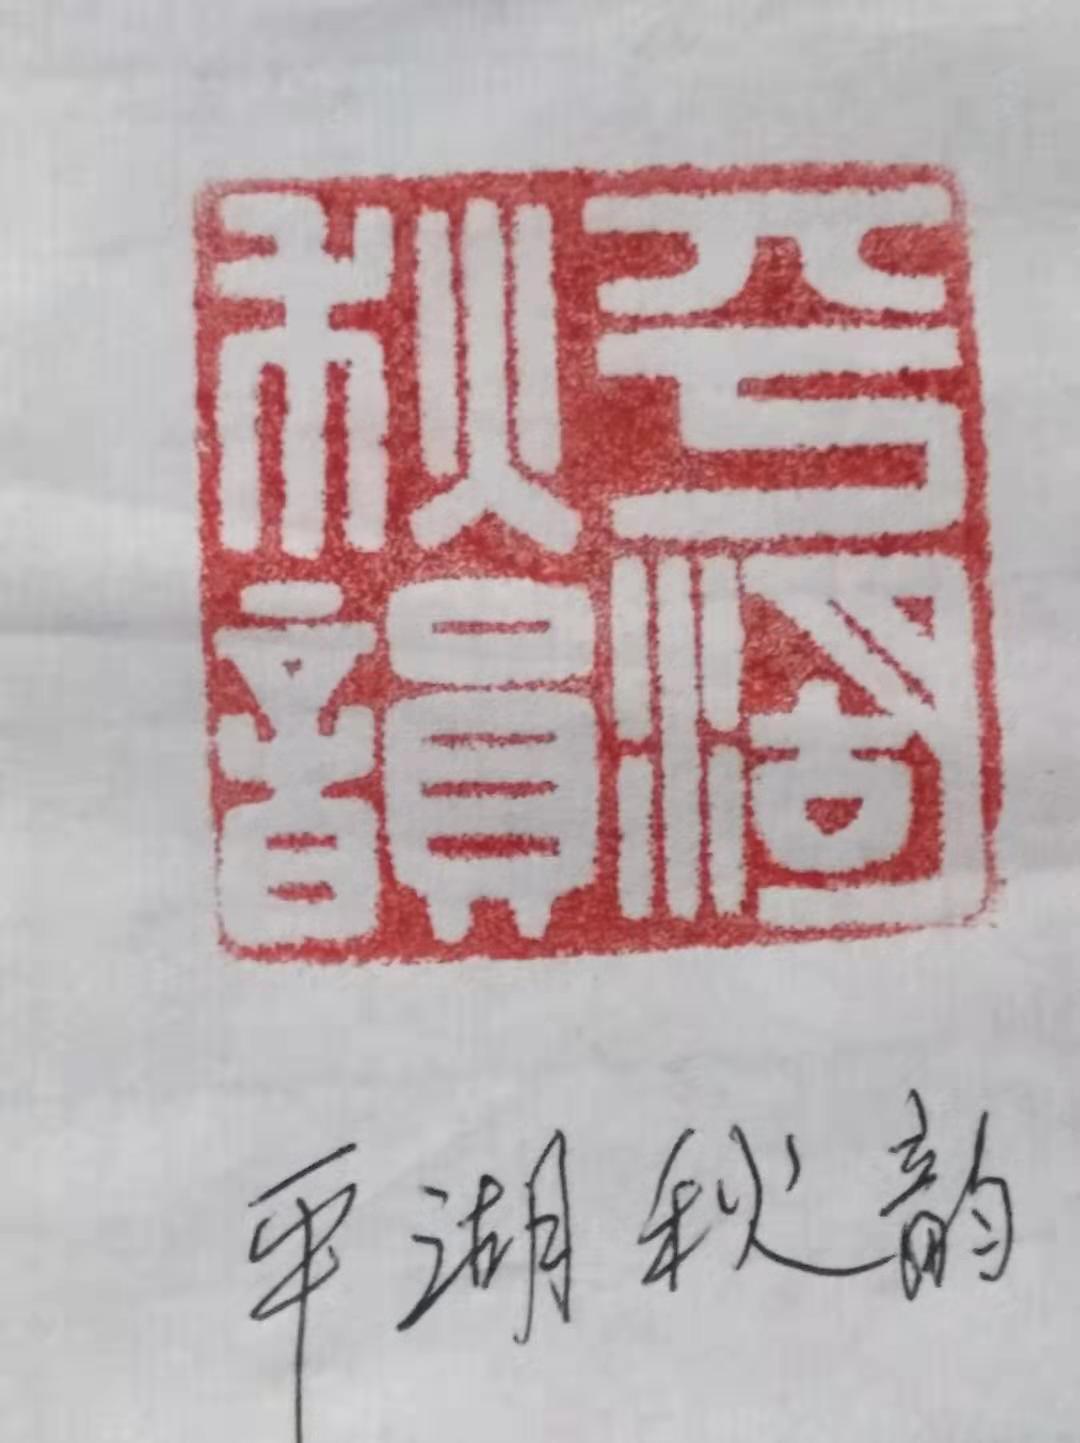 平湖
秋韻
平湖秋韵